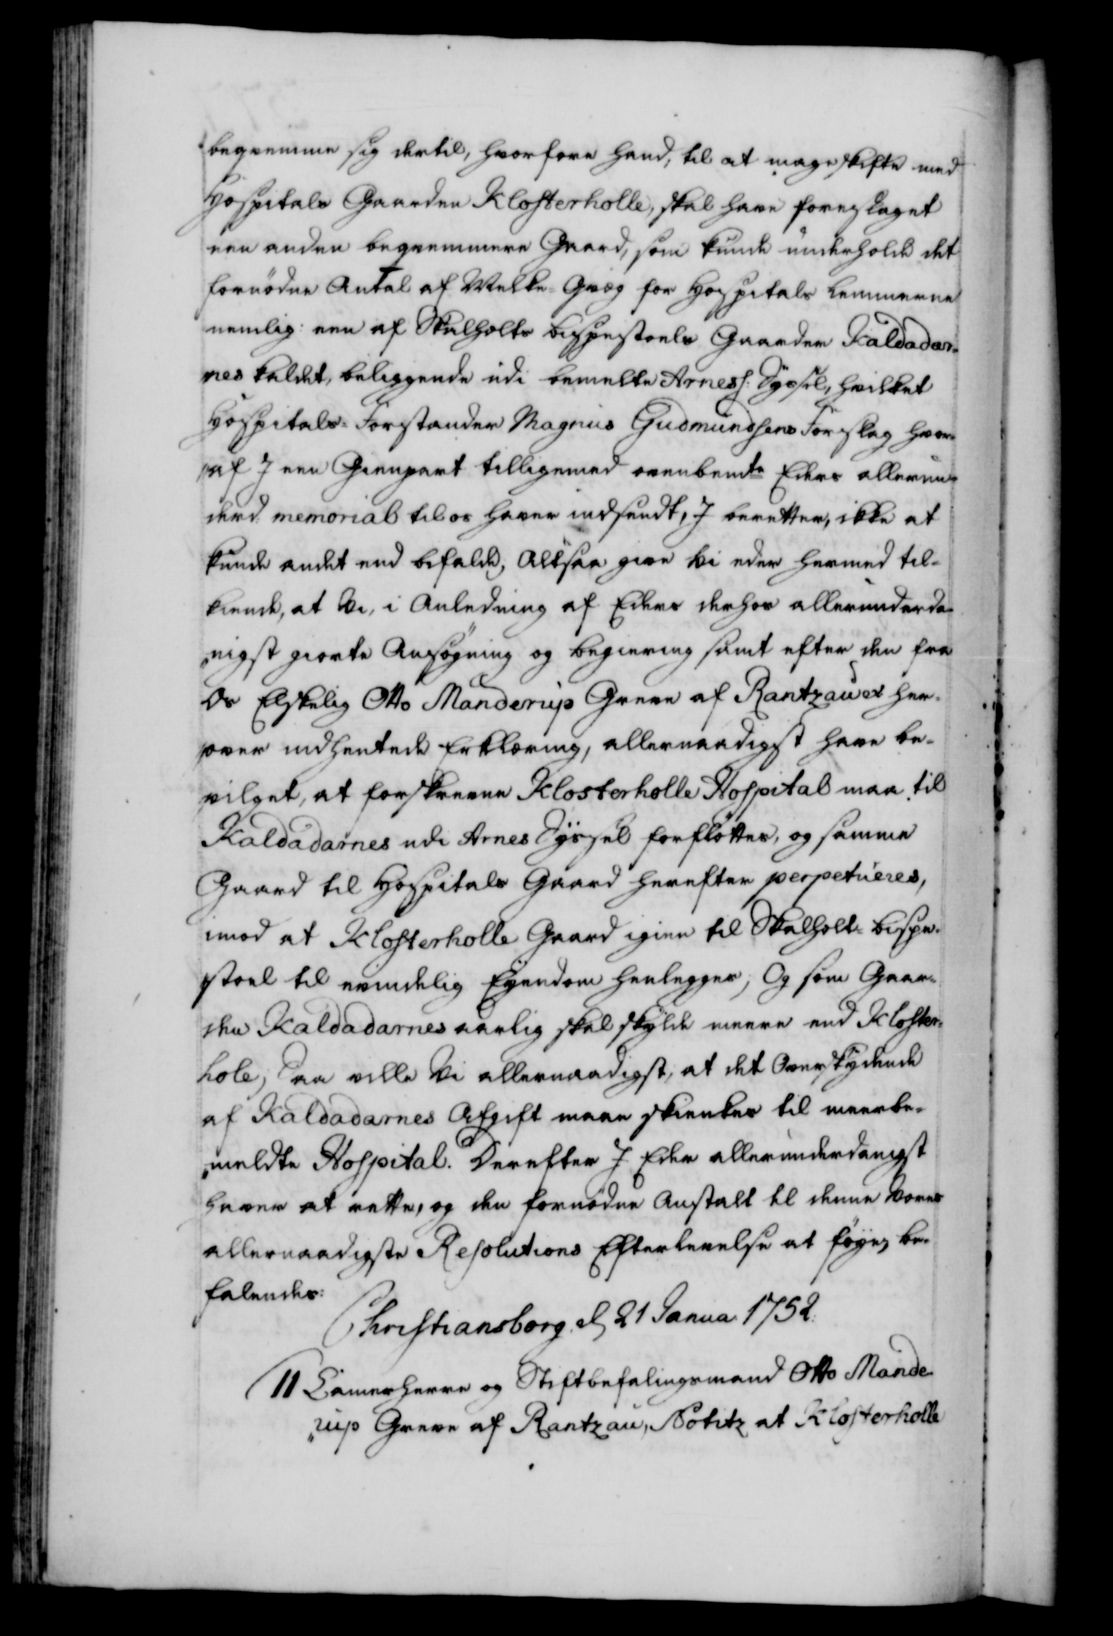 beqvemme sig dertil, hvorfore hand, til at mageskifte med
Hospitals Gaarden Klosterholle, skal have foreslaget
een anden beqvemmere Gaard, som kunde underholde det
fornødne Antal af Melke-Qvæg for Hospitals Lemmerne
nemlig: een af Skalholts bispestoels Gaarder Kaldadar-
nes kaldet, beliggende udi bemelte Arness: Syssel, hvilket
Hospitals-Forstander Magnus Gudmundsens Forslag hvor-
af I een Gienpart tilligemed ovenbemte Eders allerun-
derd. memorial til os haver indsendt, I beretter, ikke at
kunde andet end bifalde, Altsaa give Vi eder hermed til-
kiende, at Vi, i Anledning af Eders derhos allerunderda-
nigst giorte Ansøgning og begiering samt efter den fra
Os Elskelig Otto Manderup Greve af Rantzau ex her-
over indhentede Erklæring, allernaadigst have be-
vilget, at forskrevne Klosterholle Hospital maa til
Kaldadarnes udi Arnes Syssel forfløttes, og samme
Gaard til Hospitals Gaard herefter perpetueres,
imod at Klosterholle Gaard igien til Skalholt-bispe-
stoel til evindelig Eyendom henlegges; Og som Gaar-
den Kaldadarnes aarlig skal skylde meere end Kloster-
hole, Saa ville Vi allernaadigst, at det Overskydende
af Kaldadarnes Afgift maae skienkes til meerbe-
meldte Hospital. Derefter I Eder allerunderdanigst
haver at rette, og den fornødne Anstalt til denne Vores
allernaadigste Resolutions Efterlevelse at føye, be-
falendes:
Christiansborg d. 21 Janua. 1752.
11 Camerherre og Stiftbefalingsmand Otto Mande-
rup Greve af Rantzau, Notitz at Klosterholle